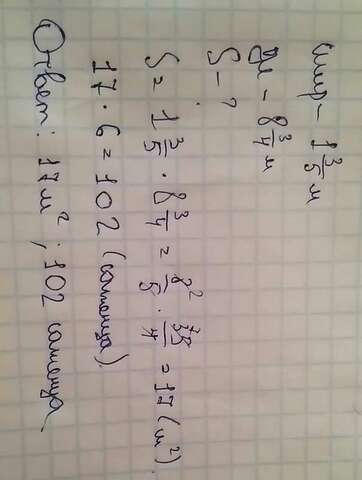 Шир – 1 3/5 м
Дл – 8 3/4 м
S – ?
S = 1 3/5 · 8 3/4 = 8²/5 · 35⁷/4 = 17 (м²).
17 · 6 = 102 (саженца)
Ответ: 17 м² ; 102 саженца